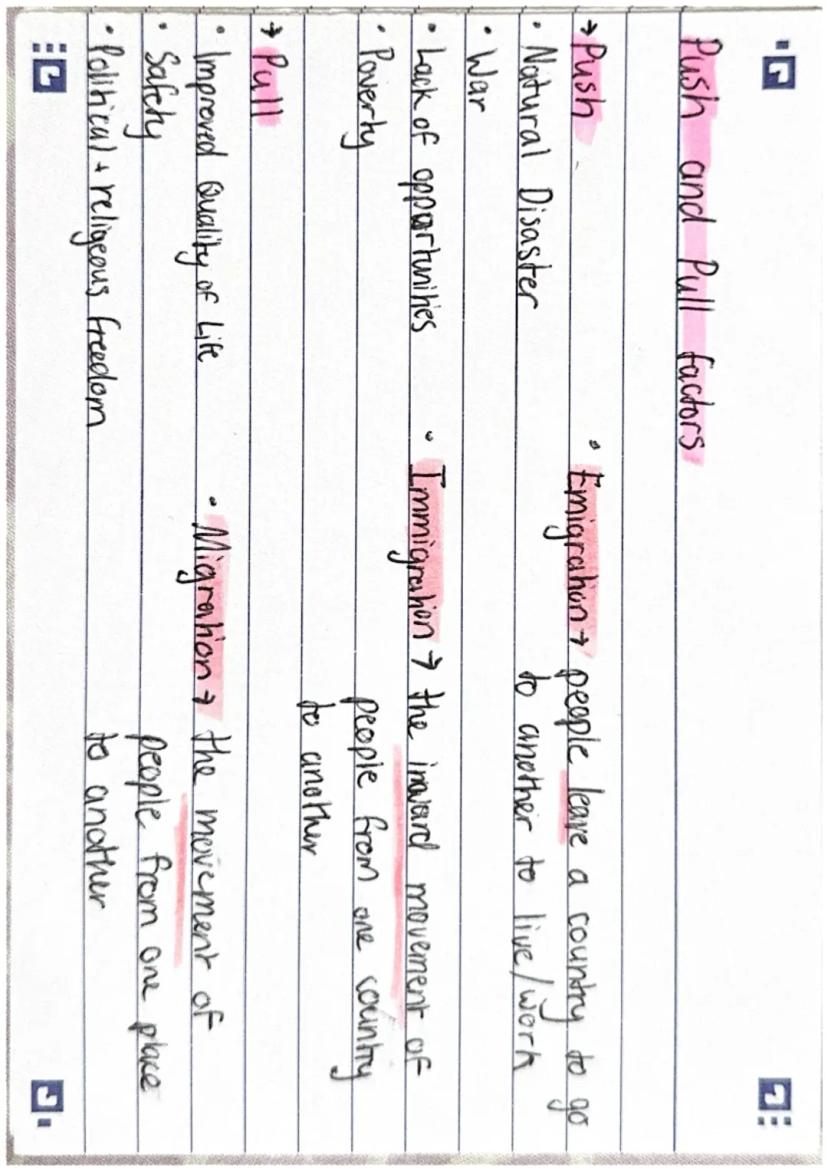 Push and Pull factors
→ Push
• Natural Disaster
• War
• Lack of opportunities
• Poverty
→ Pull
• Improved Quality of Life
• Safety
• Political + religeous freedom
• Emigration → people leave a country to go
to another to live/work
• Immigration → the inward movement of
people from one country
to another
• Migration → the movement of
people from one place
to another